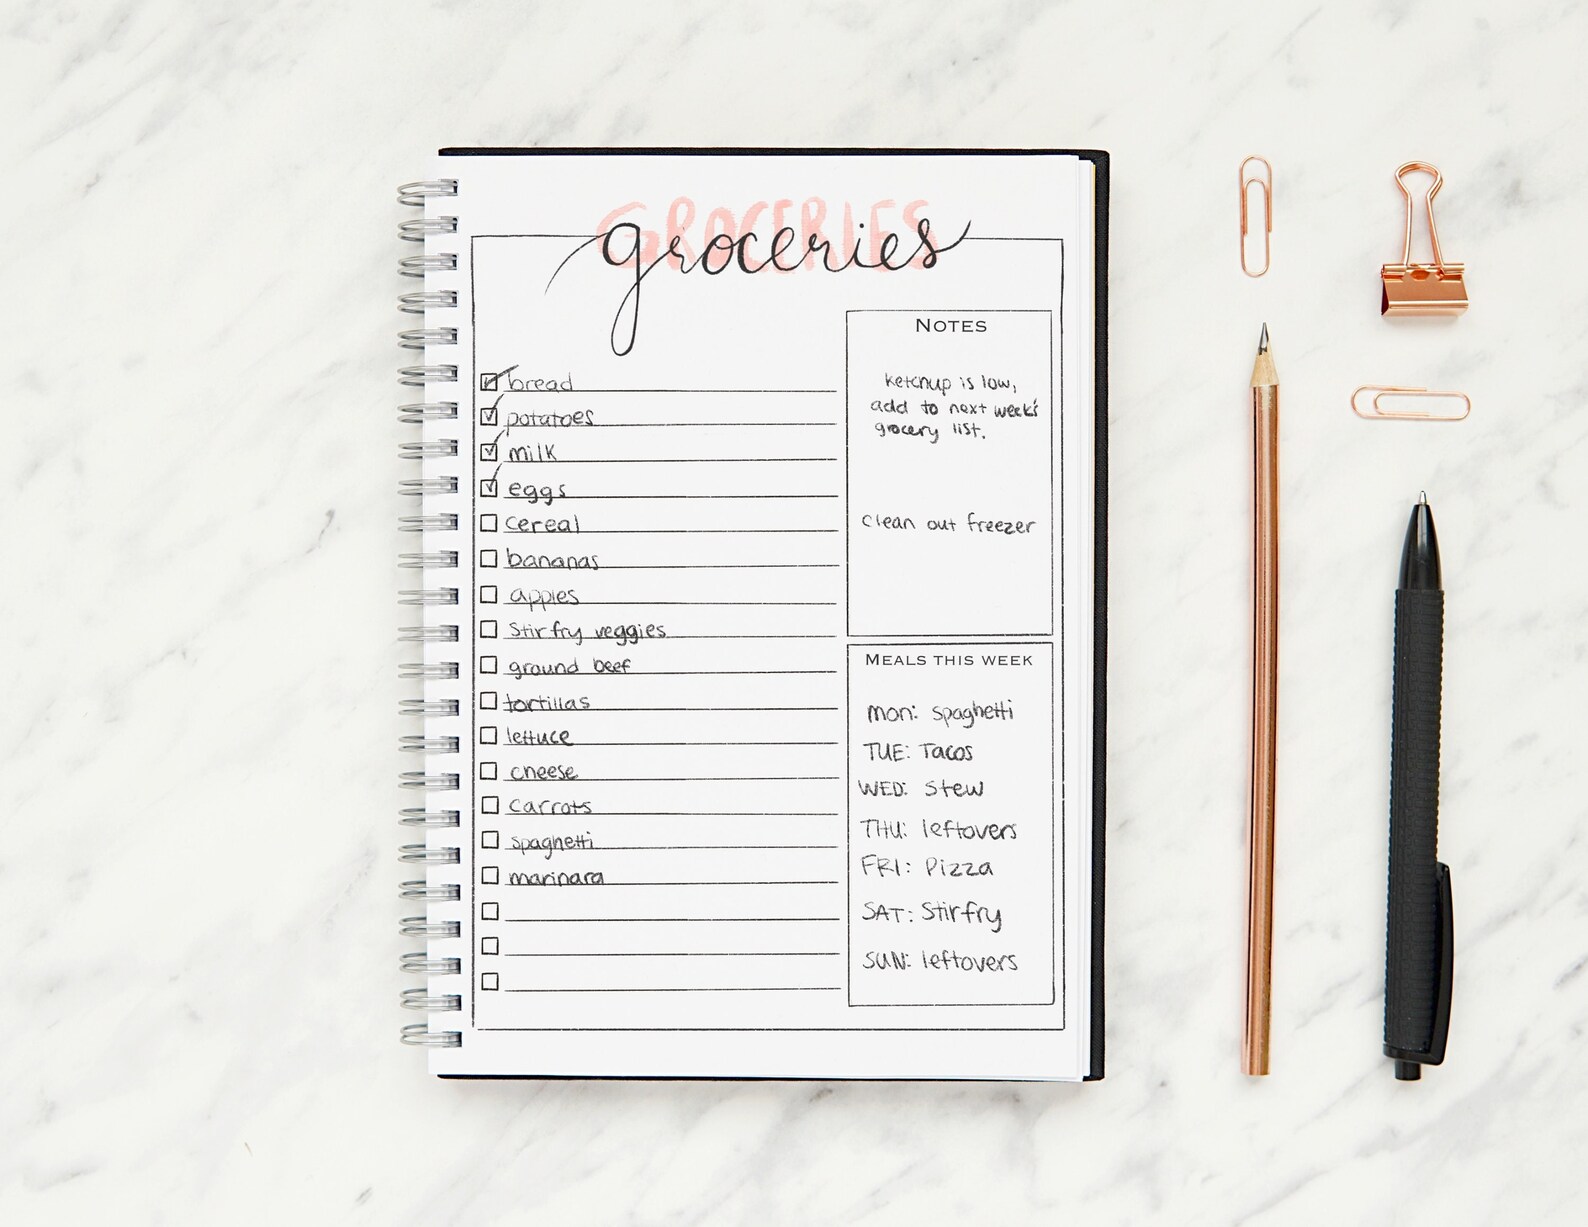 GROCERIES
groceries
bread
potatoes
milk
eggs
cereal
bananas
apples
Stirfry veggies
ground beef
tortillas
lettuce
cheese
carrots
spaghetti
marinara
NOTES
ketchup is low,
add to next week's
grocery list.
clean out freezer
MEALS THIS WEEK
Mon: spaghetti
TUE: Tacos
WED: Stew
THU: leftovers
FRI: Pizza
SAT: Stirfry
SUN: leftovers